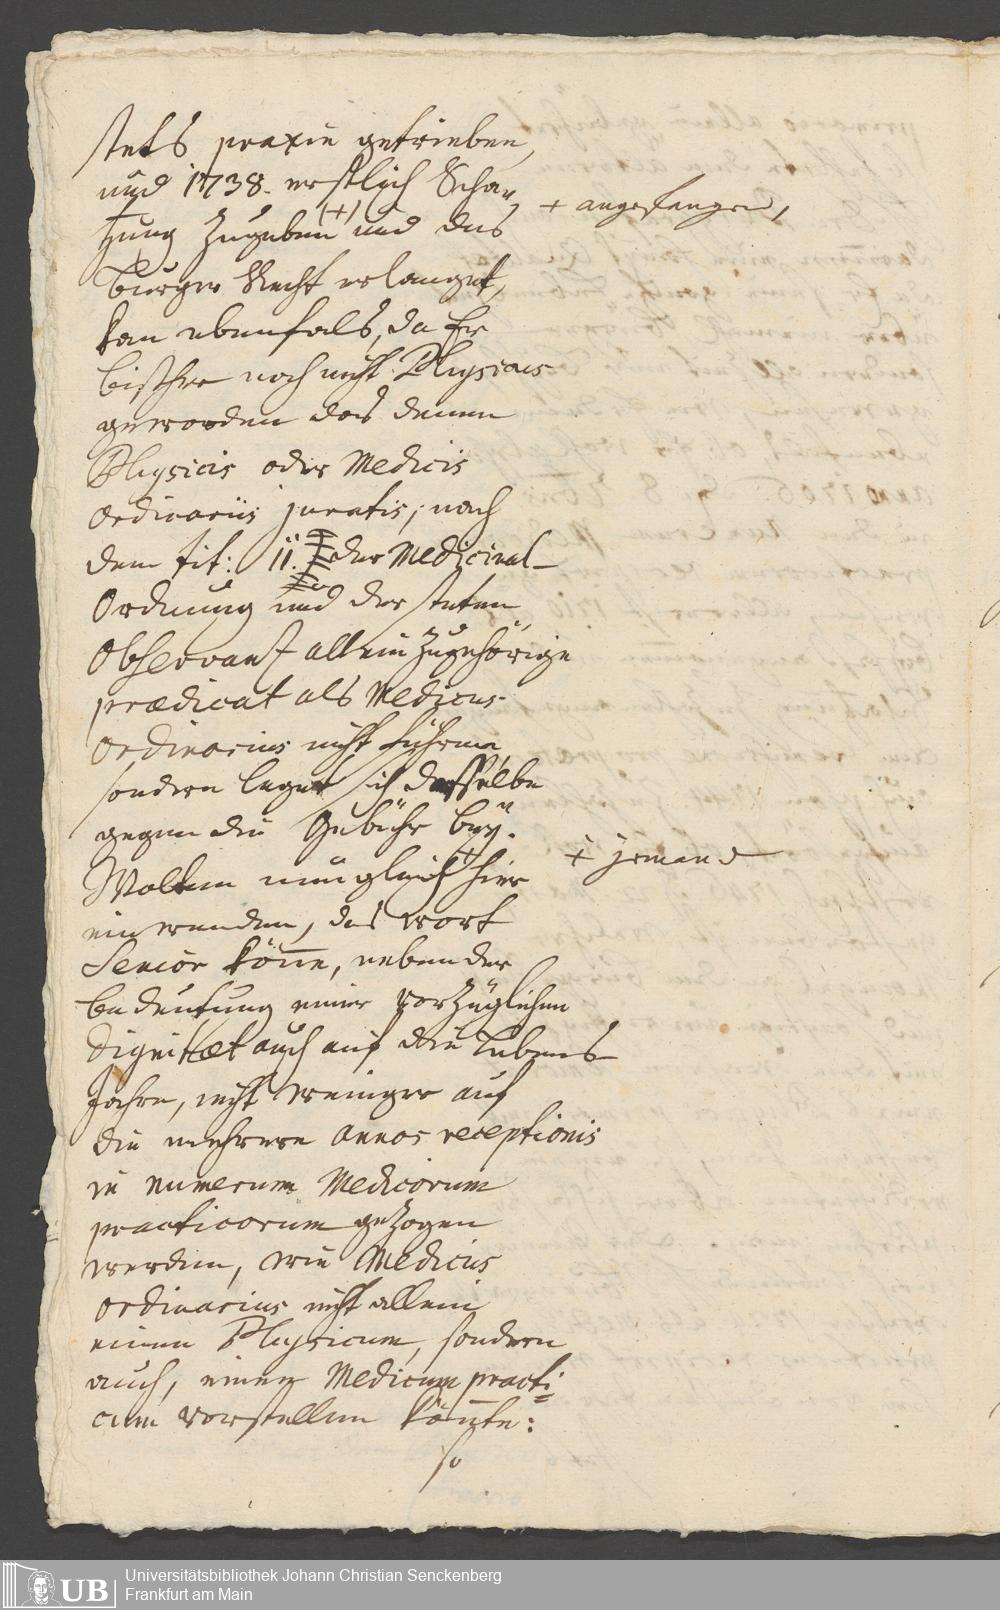 stets praxin getrieben,
und 1738. erstlich Schat,
zung zugeben (+) und das
+ angefangen,
Burger Recht erlanget,
kan ebenfals, da Er
bishero noch nicht Physicus
geworden das denen
Physicis oder Medicis
Ordinariis juratis, nach
dem tit: II. der Medicinal-
Ordnung und der steten
Observantz allein zugehörige
prædicat als Medicus
Ordinarius nicht führen,
sondern leget sich dasselbe
gegen die Gebühr bey.
Wolten nun gleich + hier
+ jemand
einwenden, das wort
Senior köñe, neben der
bedeutung einer vorzüglichen
Dignitæt auch auf die Lebens
Jahre, nicht weniger auf
die mehrere annos receptionis
in numerum Medicorum
practicorum gezogen
werden, wie Medicus
ordinarius nicht allein
einen Physicum, sondern
auch, einen Medicum practi=
cum vorstellen köñte:
so
UB Universitätsbibliothek Johann Christian Senckenberg
Frankfurt am Main